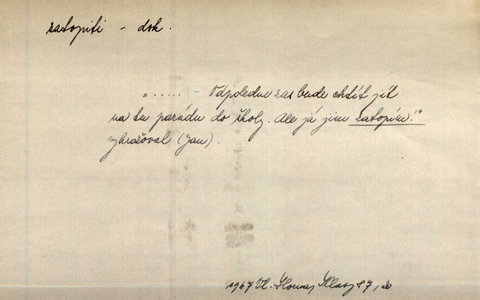 zatopiti - dok.
„..... - Odpoledne zas bude chtít jít
na tu parádu do školy. Ale já jim zatopím!“
vyhrožoval (Jan).
1947 Vl. 87,